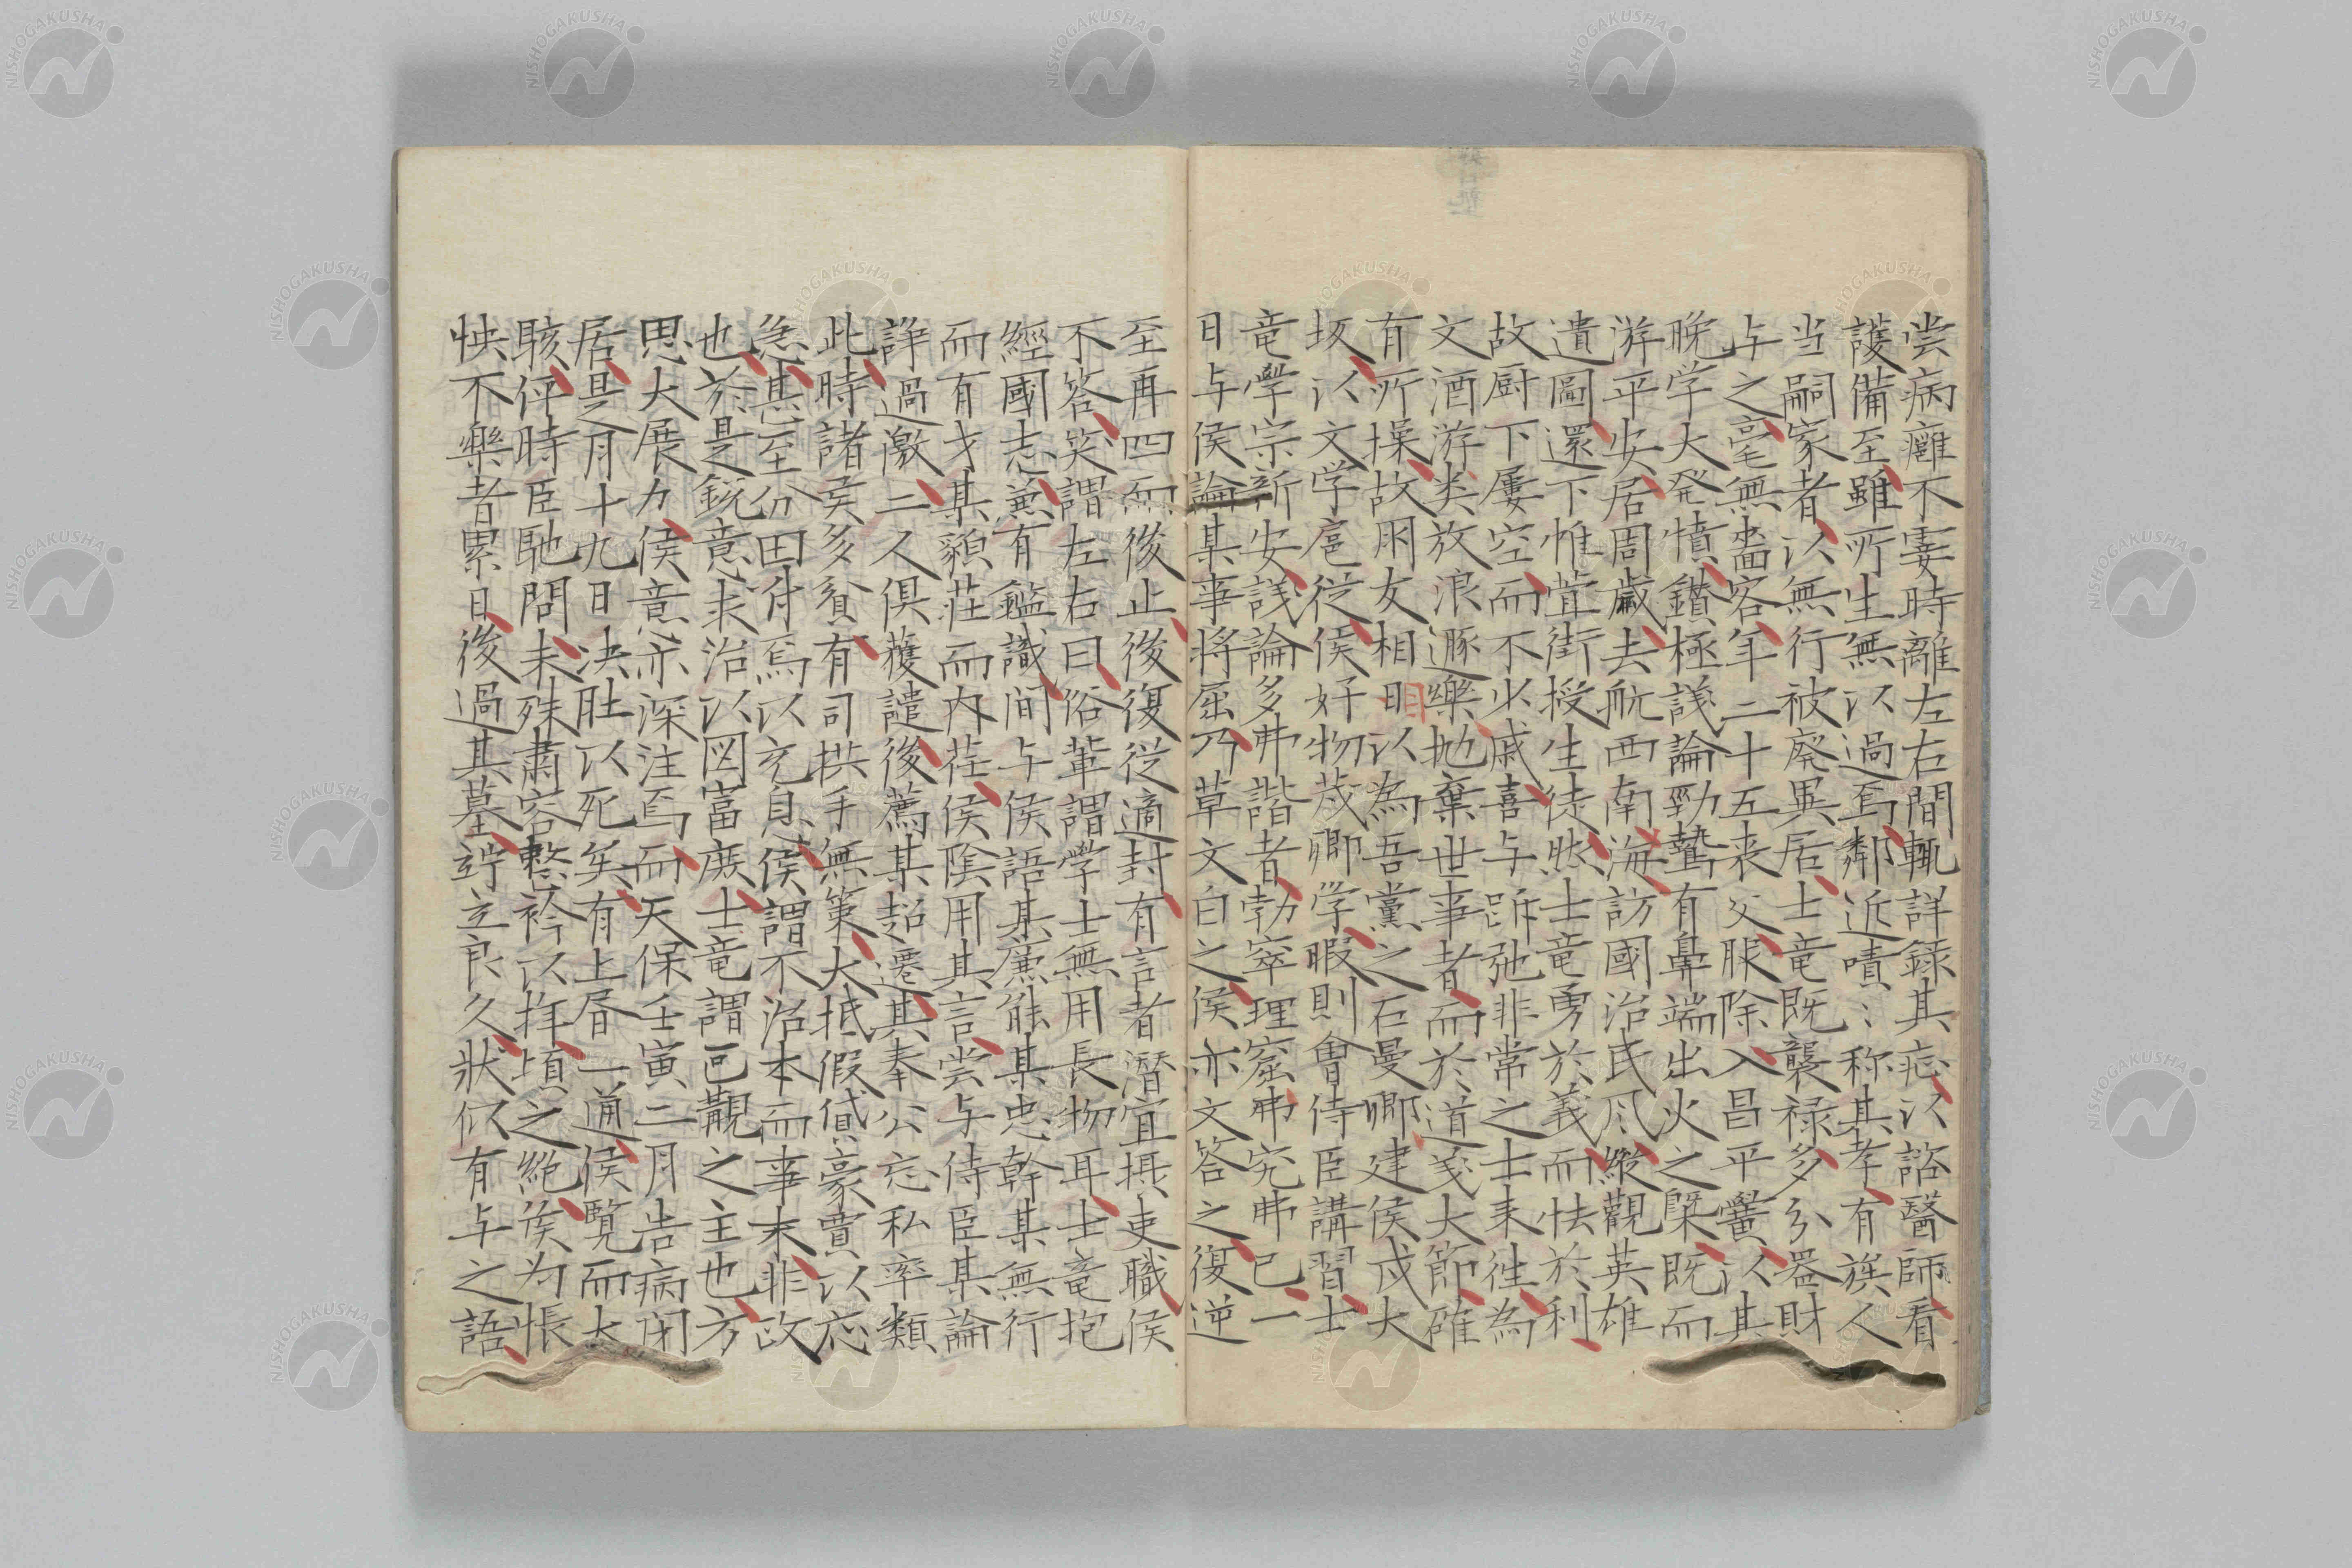 尝病癰不霎時離左右間輒詳録其症以諮醫師看
護備至雖所生無以過焉鄰近嘖〻称其孝有族人
当嗣家者以無行被廃異居士竜既襲禄多分器財
与之毫無嗇容年二十五喪父服除入昌平黌以其
晩学大発憤鑚極議論勁鷙有鼻端出火之槩既而
游平安居周歳去航西南海訪國治民風縱觀英雄
遺圖還下帷葺街授生徒然士竜勇於義而怯於利
故厨下屢空而不少戚喜与跅弛非常之士来徃為
文酒游类放浪遯樂抛棄世事者而於道義大節確
有所操故朋友相目以為吾黨之石曼卿建侯戍大
坂以文学扈従侯好物茂卿学暇則會侍臣講習士
竜學宗新安議論多弗諧者勃窣理窟弗究弗已一
日与侯論某事将屈乃草文白之侯亦文答之復逆
至再四而後止後復従適封有言者潛宜摂吏職侯
不答笑謂左右曰俗輩謂學士無用長物耳士竜抱
經國志兼有鑑識间与侯語某廉能某忠幹某無行
而有才某貌莊而内荏侯陰用其言尝与侍臣某論
諍過激二人俱獲譴後薦某超遷其奉公忘私率類
此時諸矦多貧有司拱手無策大抵假貸豪賈以応
急其至分田付焉以充息侯謂不治本而事末非政
也於是鋭意求治以図富庶士竜謂可覯之主也方
思大展力侯意亦深注焉而天保壬寅二月告病闭
居是月十九日决肚以死矣有上屠一通侯覧而大
駭伻時臣馳問未殊肅容整衿以拝頃之絶矦为悵
怏不樂者累日後過其墓竚立良久状似有与之語